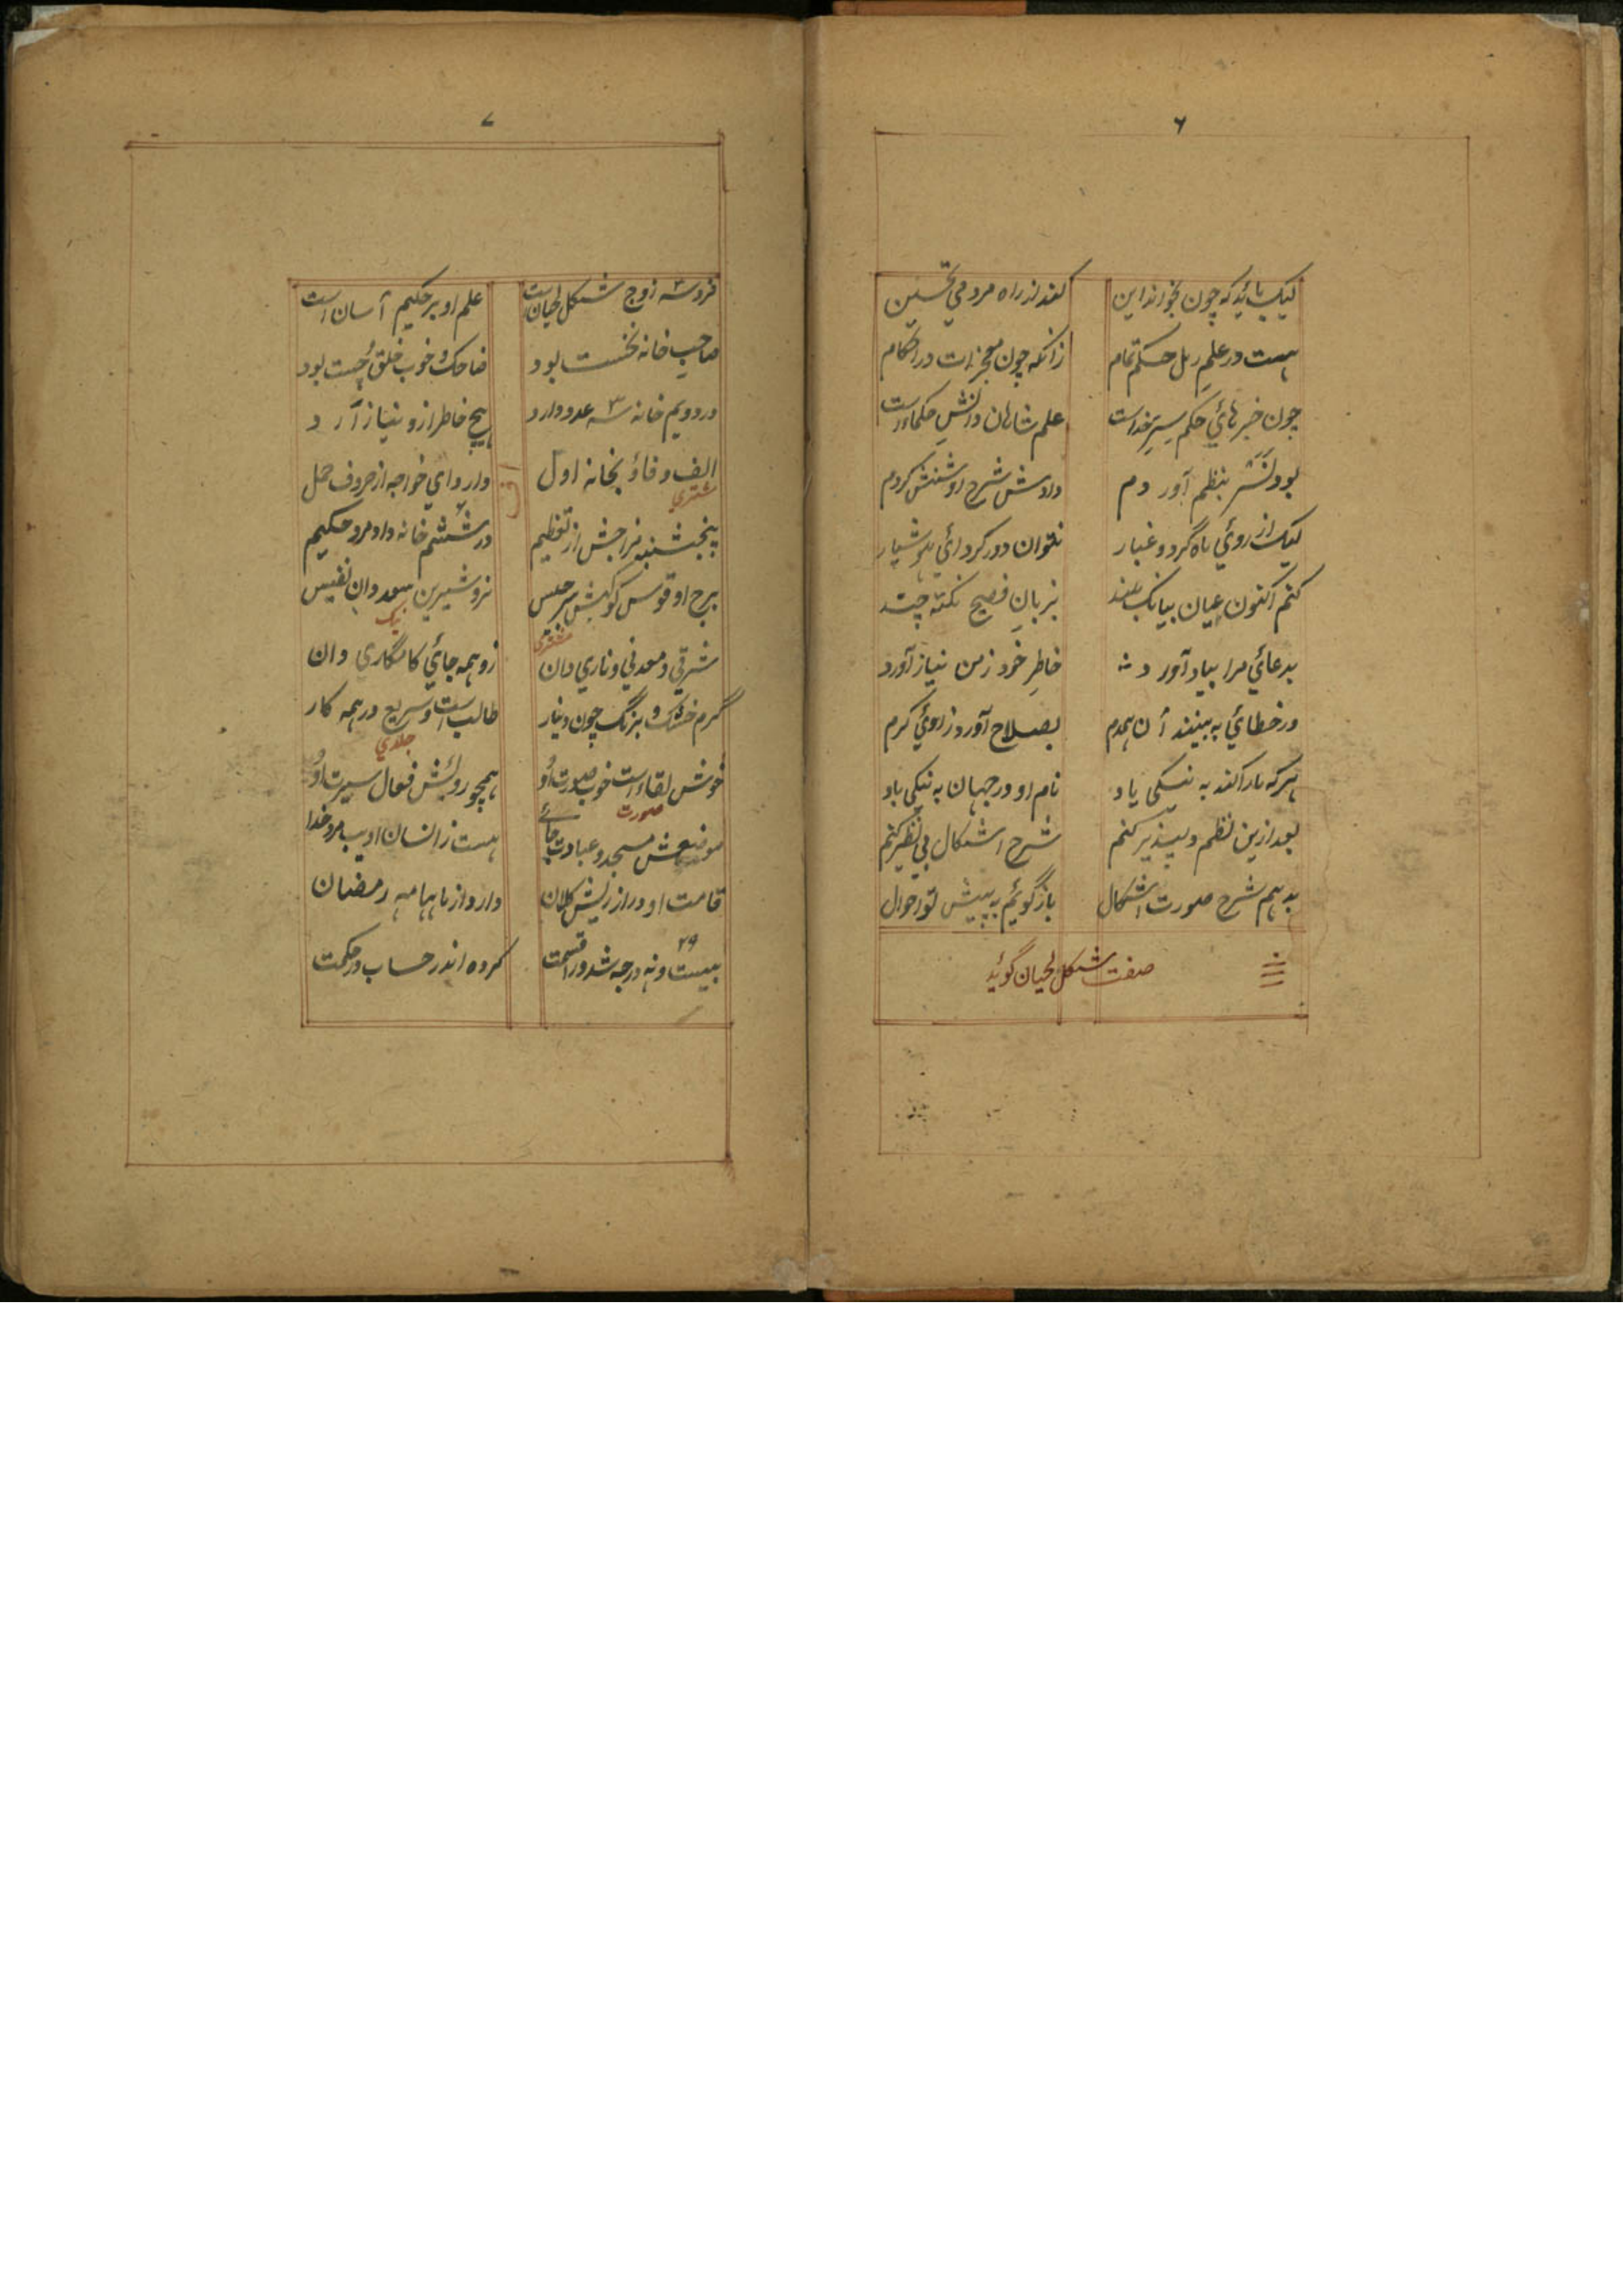 ۶
لیک باید که چون بخواند این کند از راه مردمی تحسین
هست در علم رمل حکم تمام زانکه چون معجزات در احکام
چون خبرهائی حکم سِرّ خداست علم شاهان و دانش حکماء است
بود نثر بنظم آوردم دادمش شرح و روشنش کردم
لیک از روئی ماه گرد و غبار نتوان دور کرد ائی هوشیار
کنم اکنون عیان ببانگ بلند بزبان فصیح نکته چند
بدعائی مرا بیاد آورد خاطر خود زمن نیاز آورد
ور خطائی به بینند آن همدم بصلاح آورد ز روئی کرم
هر که ما را کند به نیکی یاد نام او در جهان به نیکی باد
بعد ازین نظم دلپذیر کنم شرح اشکال بی نظیر کنم
بدهم شرح صورت اشکال باز گوئیم به پیش تو احوال
صفت شکل لحیان گوید
۷
فرد و سه زوج شکل لحیان است علم او بر حکیم آسان است
صاحب خانه نخست بود ضاحک و خوب خلق و چست بود
در دویم خانه سه عدد دارد هیچ خاطر ازو نیازآرد
الف و فاؤ بخانه اول دارد ای خواجه از حروف جمل
اول
مشتری
پنجشنبه مزاجش از تعظیم در ششم خانه داد مرد حکیم
برج او قوس کوکبش برجیس نر و شیرین سعد دان نفیس
مشتری
نیک
شرقی و معدنی و ناری دان زو همه جائی کامگاری دان
گرم خشک و برنگ چون دینار طالب است و سریع در همه کار
جلدی
خوش لقاء است خوب صورت او همچو رویش فعال سیرت او
صورت
موضعش مسجد و عبادت جائے هست ز انسان ادیب مرد خدا
قامت او دراز ریش کلان دارد از ماهها مه رمضان
۲۹
بیست و نه درجه شد ورا قسمت کرده اندر حساب در حکمت